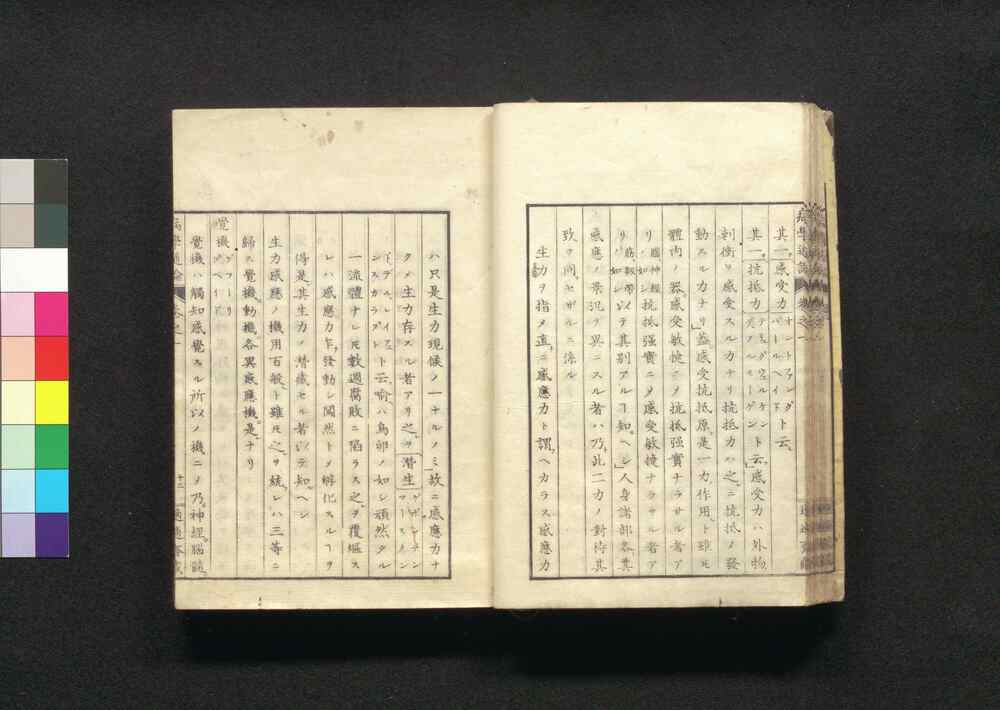 其一、感受力 オントファングバールヘイド ト云、
其二、抵抗力 テーゲンウェルケンドフェルモーゲン ト云、感受力ハ外物
刺衝ヲ感受スルカナリ抵抗力ハ之ニ抗抵〆發
動スル力ナリ」蓋感受抗抵原是一力ノ作用ト雖𪜈
體内ノ器感受敏捷ニ〆抗抵强實ナラサル者ア
リ 腦神經ノ如シ 抗抵强實ニ〆感受敏捷ナラサル者ア
リ 筋、靱帶ノ如シ 以テ其別アルヿ知ヘシ」人身諸部各其
感應ノ景況ヲ異ニスル者ハ乃、此二力ノ對待其
致ヲ同セザルニ係ル
生力ヲ指〆直ニ感應力ト謂ヘカラス感應力
ハ只是生力現候ノ一ナルノミ故ニ感應力ナ
ク〆生力存スル者アリ之ヲ潜生 ゲボンデン
ト云、喩ハ鳥卵ノ如シ頑然タル
一流體ナレ𪜈數週腐敗ニ陷ラス之ヲ覆煦ス
レハ感應力乍發動シ閴然ト〆孵化スルヿヲ
得是其生力ノ潜蔵セル者以テ知ヘシ
生力感應ノ機用百般ト雖𪜈之ヲ統レハ三等ニ
歸ス覺機、動機、各異感應機、是ナリ
覺機
覺機ハ觸知感覺スル所以ノ機ニ〆乃神經腦髓